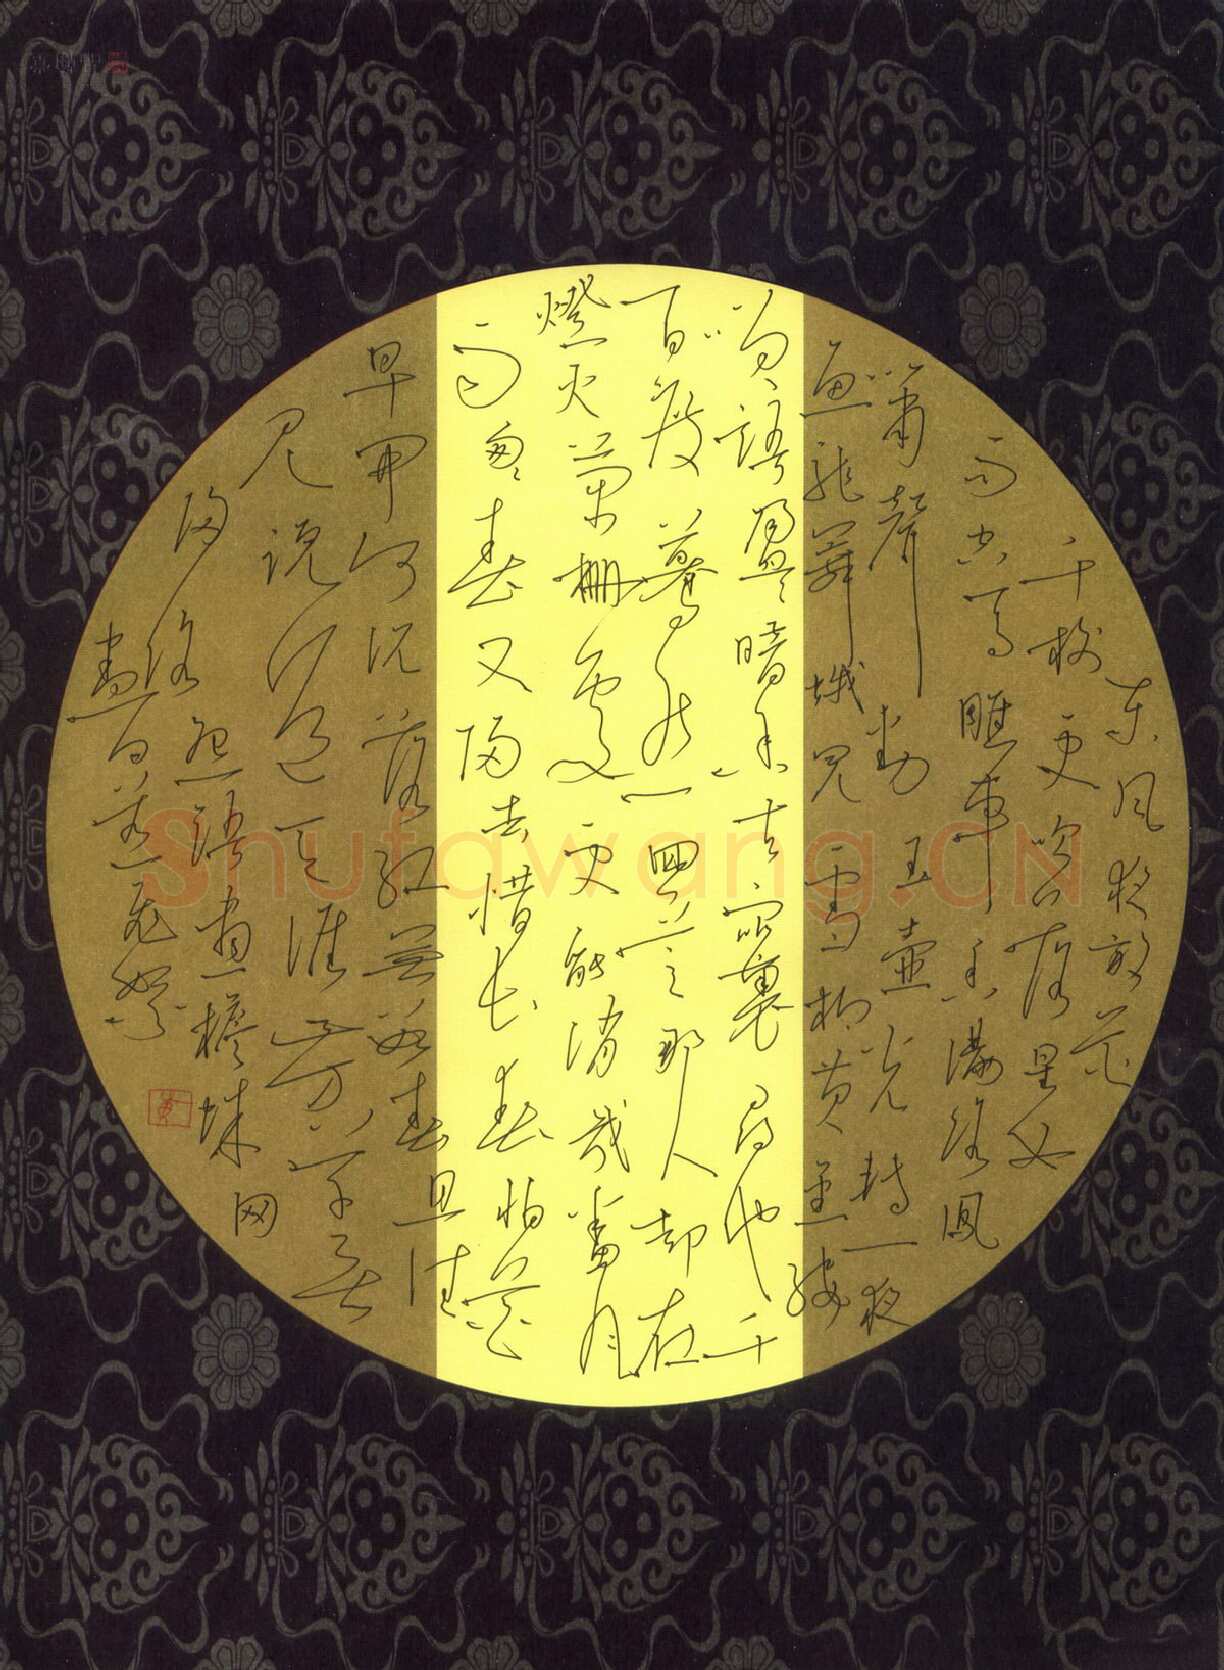 东风夜放花
千树更吹落星如
雨宝马雕車香满路凤
箫聲动玉壶光转一夜
鱼龙舞蛾兒雪柳黄金缕
笑语盈盈暗香去众裏寻他千
百度蓦然回首那人却在
燈火蘭栅处更能消几番风
雨匆匆春又归去惜长春怕花
早开何况落红无数春且住
见说道天涯芳草无
归路怨语画檐蛛网
尽日惹飞絮
Shufawang.CN